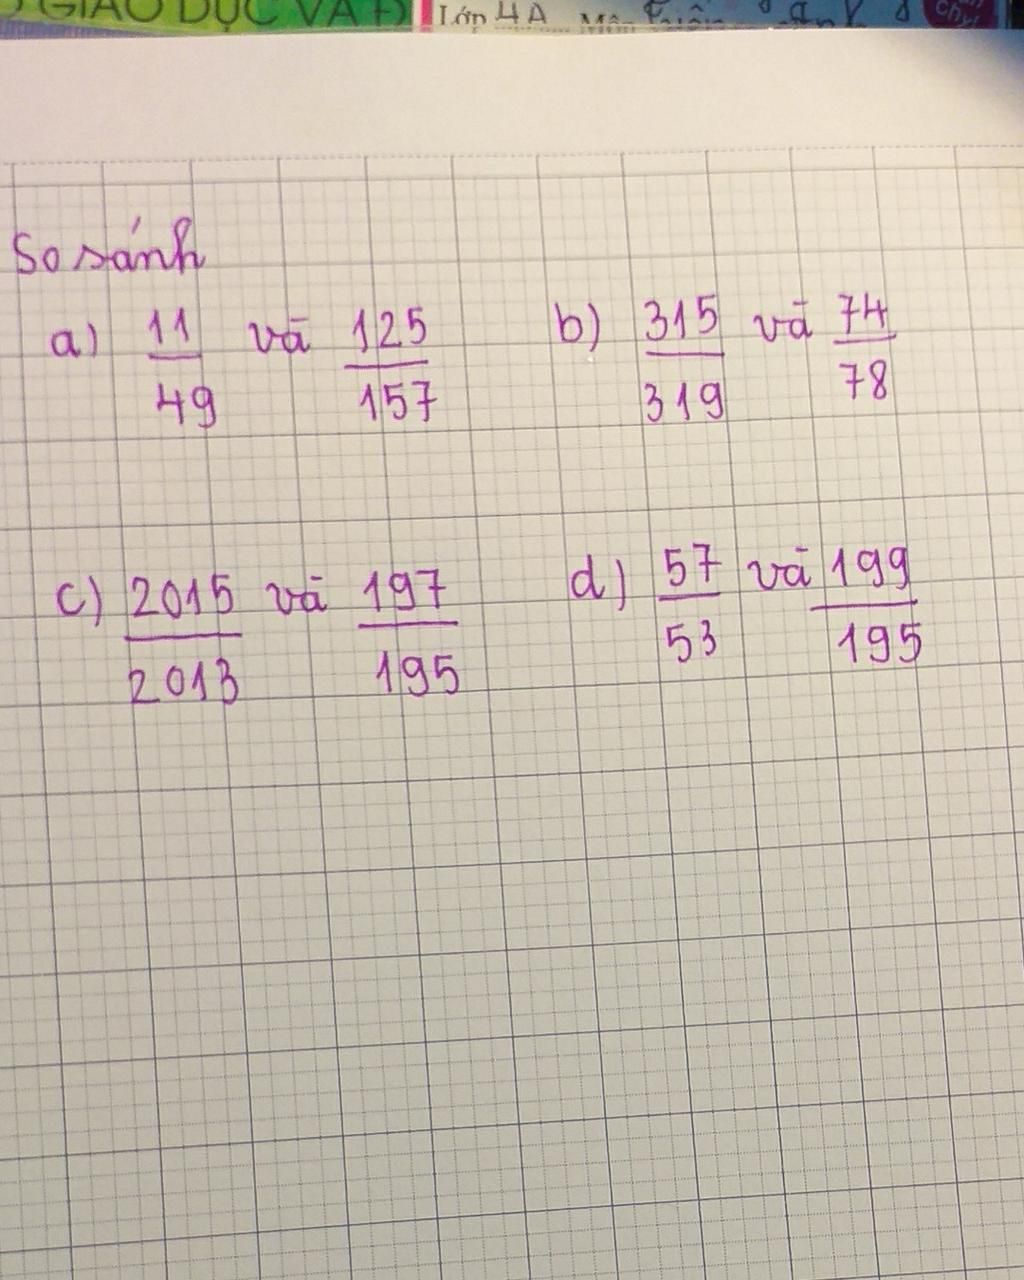 GIÁO DỤC VÀ Đ
Lớp 4A
So sánh
a) 11/49 và 125/157 b) 315/319 và 74/78
c) 2015/2013 và 197/195 d) 57/53 và 199/195